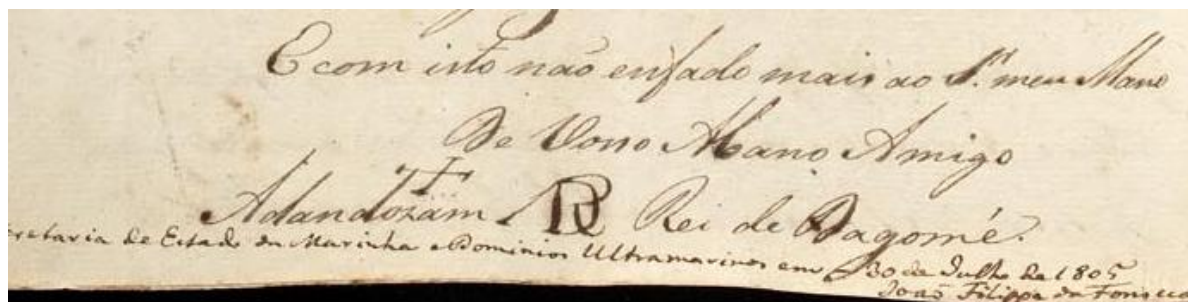 E com isto não enfado mais ao Sr. meu Mano
De Vosso Mano Amigo
Adandozam R Rei de Dagomé.
Secretaria de Estado da Marinha e Dominios Ultramarinos em 30 de Julho de 1805
João Filippe da Fonseca